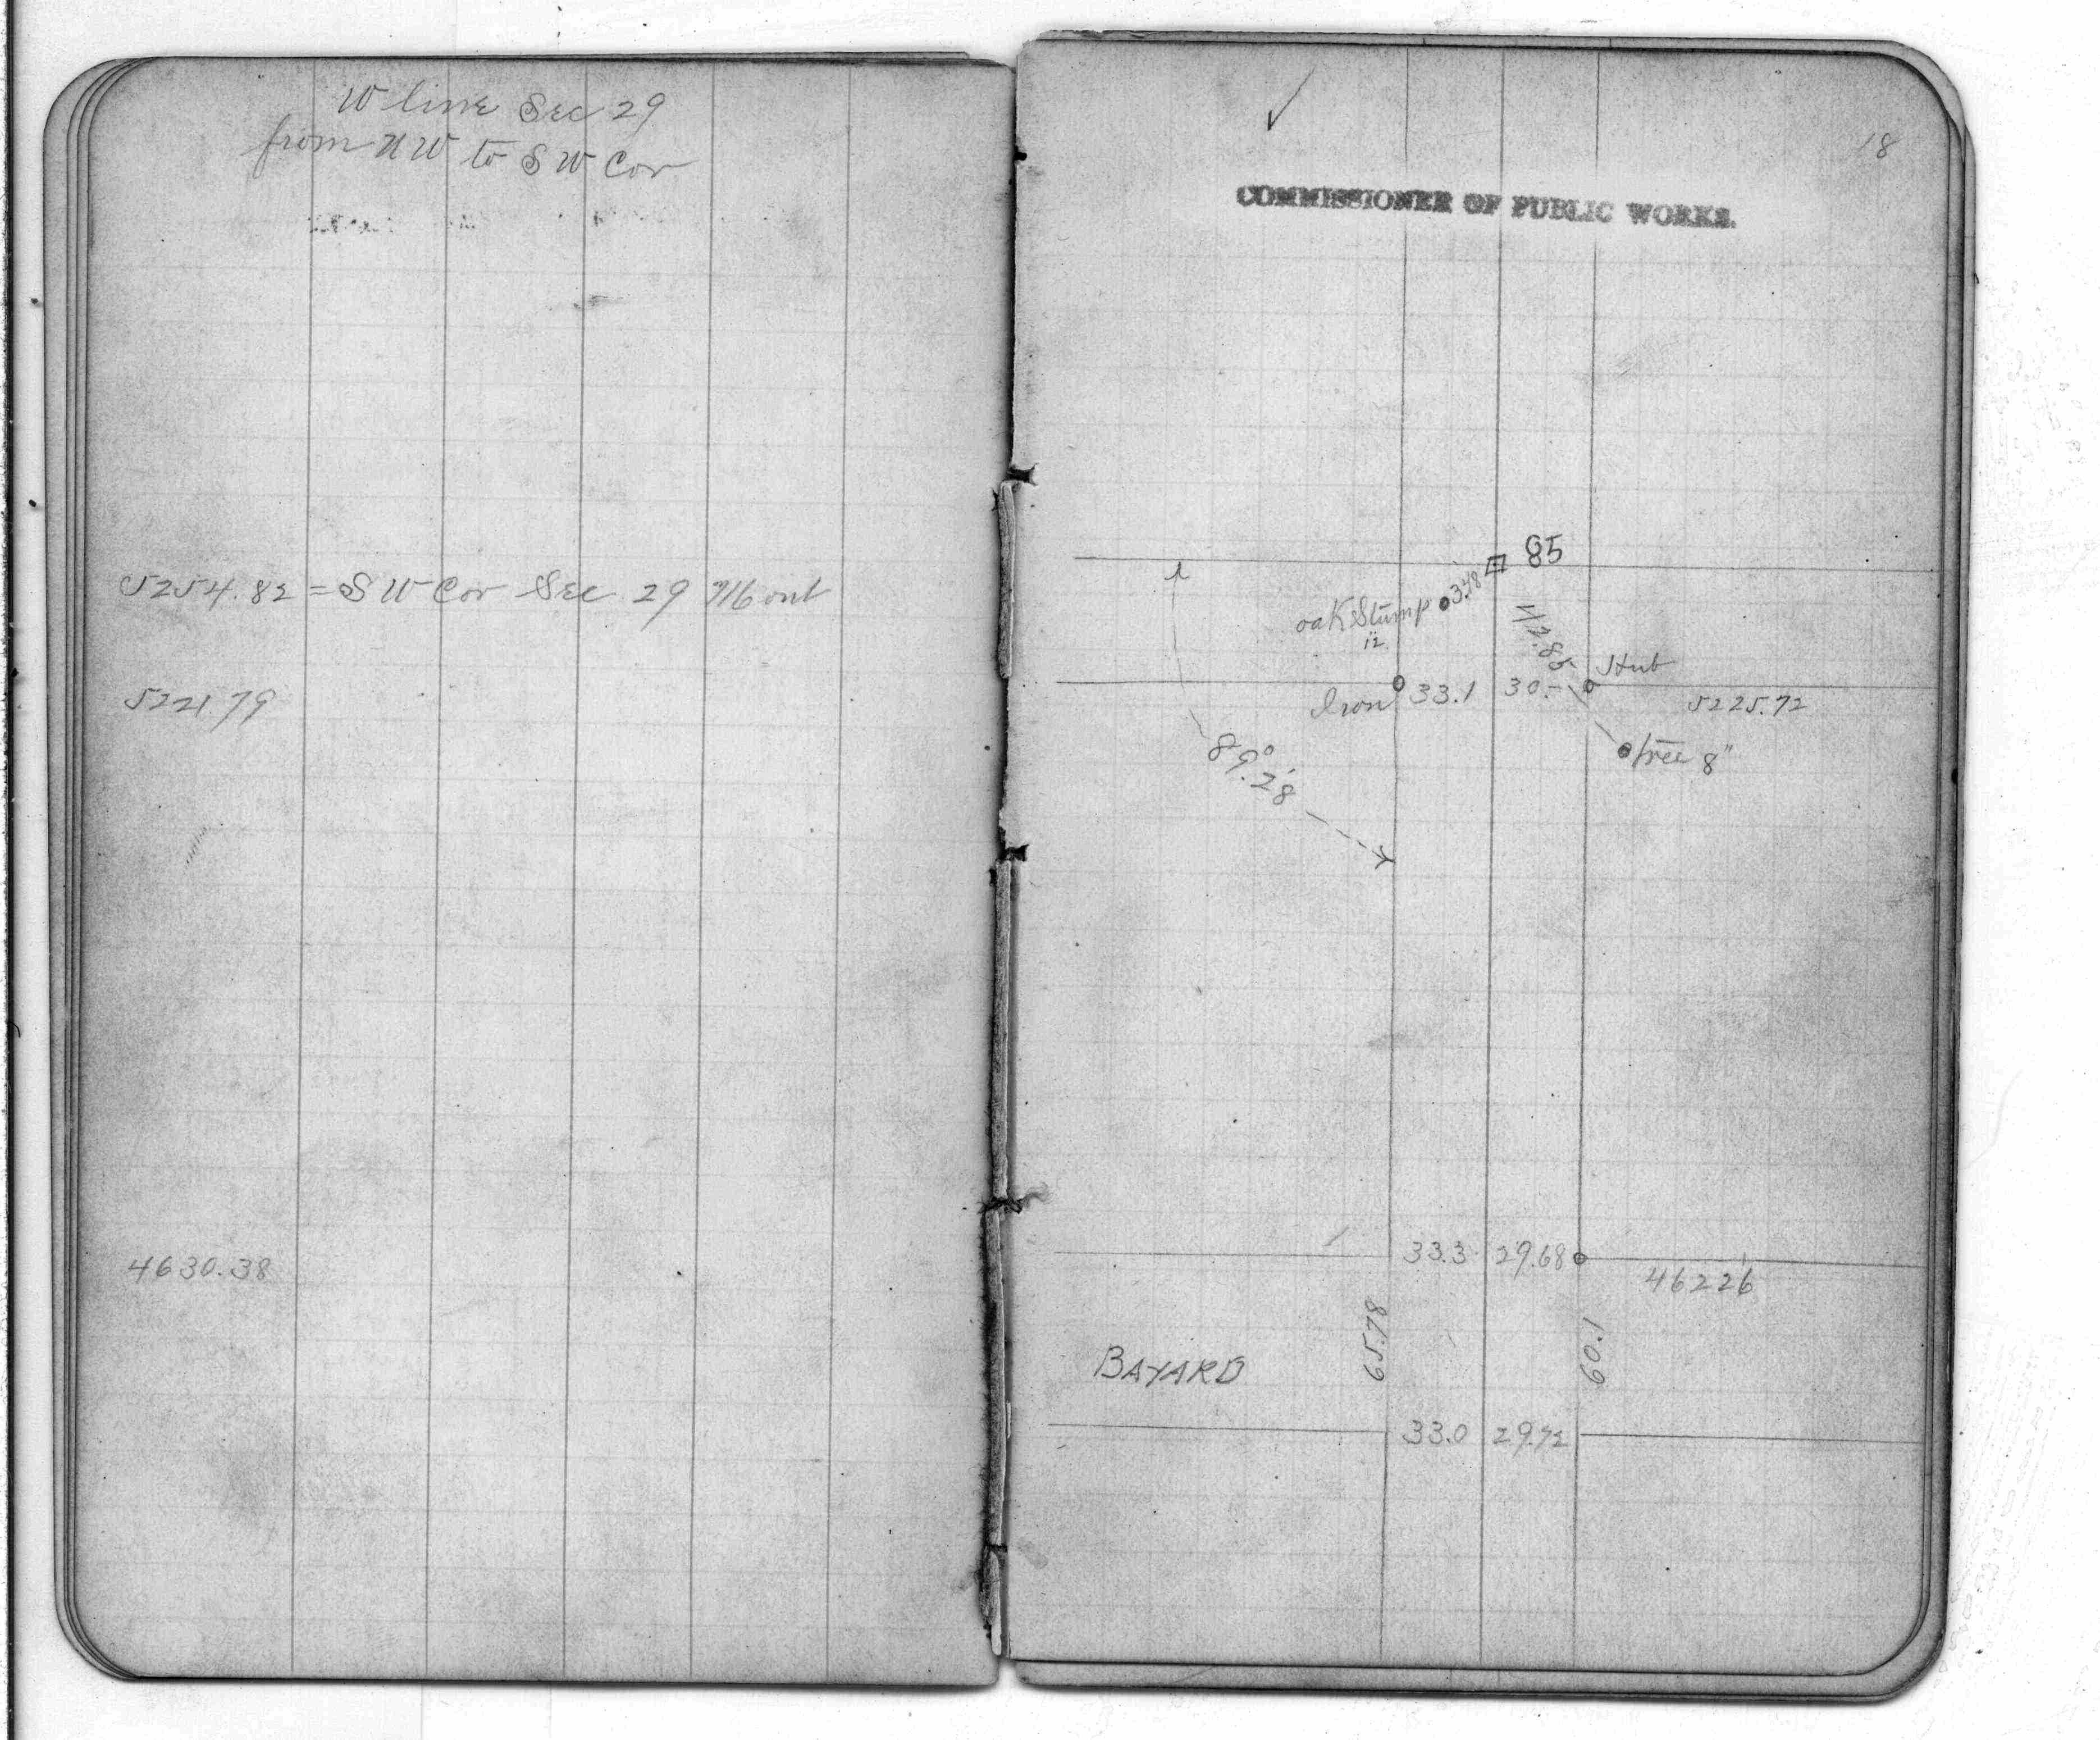 W line Sec 29
from NW to SW Cor
5254.82 = SW Cor Sec 29 Mont
5221.79
4630.38
18
COMMISSIONER OF PUBLIC WORKS.
85
oak Stump
12"
42.85
Hub
Iron 33.1 30.-
5225.72
tree 8"
89°.28'
33.3 29.68
4622 6
65.78
60.1
BAYARD
33.0 29.72